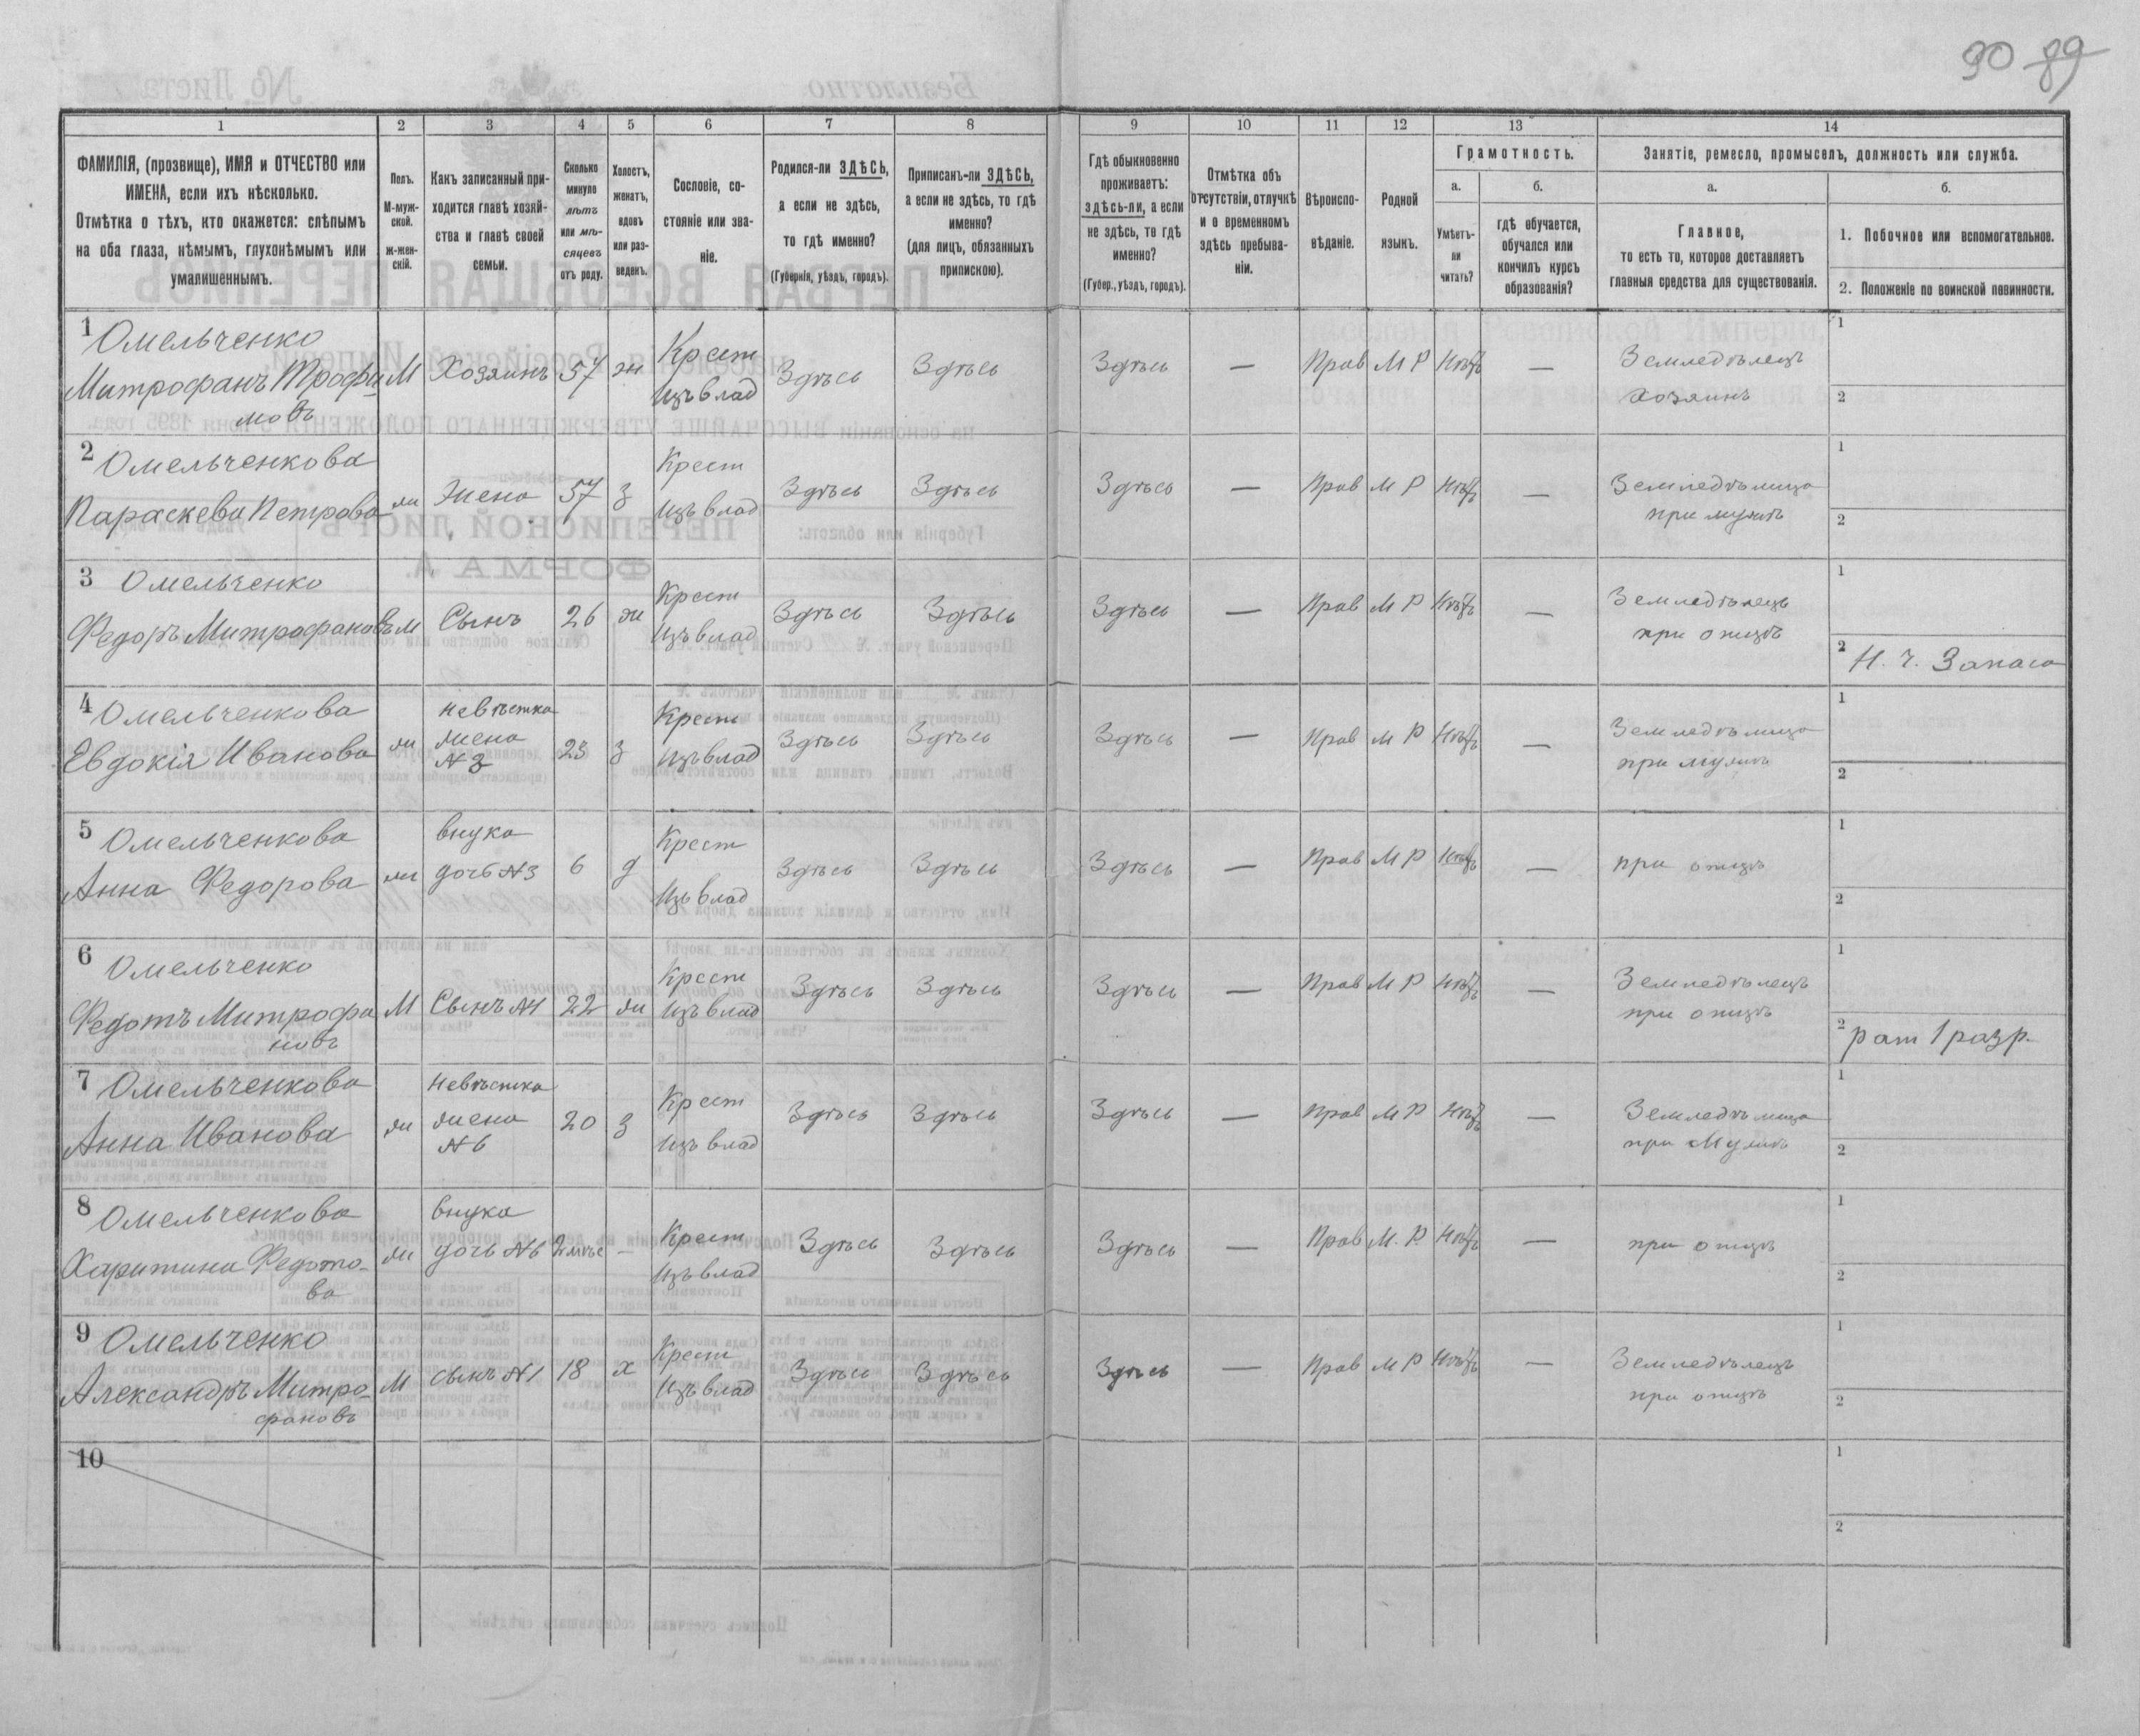 90 89
1 2 3 4 5 6 7 8 9 10 11 12 13 14
ФАМИЛІЯ, (прозвище), ИМЯ и ОТЧЕСТВО или
ИМЕНА, если ихъ нѣсколько.
Отмѣтка о тѣхъ, кто окажется: слѣпымъ
на оба глаза, нѣмымъ, глухонѣмымъ или
умалишеннымъ.
Полъ.
М-муж-
ской.
ж-жен-
скій.
Какъ записанный при-
ходится главѣ хозяй-
ства и главѣ своей
семьи.
Сколько
минуло
лѣтъ
или мѣ-
сяцевъ
отъ роду.
Холостъ,
женатъ,
вдовъ
или раз-
веденъ.
Сословіе, со-
стояніе или зва-
ніе.
Родился-ли ЗДѢСЬ,
а если не здѣсь,
то гдѣ именно?
(Губернія, уѣздъ, городъ).
Приписанъ-ли ЗДѢСЬ,
а если не здѣсь, то гдѣ
именно?
(для лицъ, обязанныхъ
припискою).
Гдѣ обыкновенно
проживаетъ:
здѣсь-ли, а если
не здѣсь, то гдѣ
именно?
(Губер., уѣздъ, городъ).
Отмѣтка объ
отсутствіи, отлучкѣ
и о временномъ
здѣсь пребыва-
ніи.
Вѣроиспо-
вѣданіе.
Родной
языкъ.
Грамотность.
а.
Умѣетъ-
ли
читать?
б.
гдѣ обучается,
обучался или
кончилъ курсъ
образованія?
Занятіе, ремесло, промыселъ, должность или служба.
а.
Главное,
то есть то, которое доставляетъ
главныя средства для существованія.
б.
1. Побочное или вспомогательное.
2. Положеніе по воинской повинности.
1 Омельченко
Митрофанъ Трофи-
мовъ
М Хозяинъ 57 ж
Крест
Изъ влад
Здѣсь Здѣсь Здѣсь — Прав М Р Нѣтъ —
Земледѣлецъ
хозяинъ
1
2
2 Омельченкова
Параскева Петрова
ж Жена 57 з
Крест
Изъ влад
Здѣсь Здѣсь Здѣсь — Прав М Р Нѣтъ —
Земледѣлица
при мужѣ
1
2
3 Омельченко
Федоръ Митрофановъ
М Сынъ 26 ж
Крест
Изъ влад
Здѣсь Здѣсь Здѣсь — Прав М Р Нѣтъ —
Земледѣлецъ
при отцѣ
1
2 Н. Ч. Запаса
4 Омельченкова
Евдокія Иванова
ж
невѣстка
жена
№ 3
23 з
Крест
Изъ влад
Здѣсь Здѣсь Здѣсь — Прав М Р Нѣтъ —
Земледѣлица
при мужѣ
1
2
5 Омельченкова
Анна Федорова
ж
внука
дочь № 3
6 д
Крест
Изъ влад
Здѣсь Здѣсь Здѣсь — Прав М Р Нѣтъ —
при отцѣ
1
2
6 Омельченко
Федотъ Митрофа
новъ
М Сынъ № 1 22 ж
Крест
Изъ влад
Здѣсь Здѣсь Здѣсь — Прав М Р Нѣтъ —
Земледѣлецъ
при отцѣ
1
2 рат 1 разр.
7 Омельченкова
Анна Иванова
ж
Невѣстка
жена
№ 6
20 з
Крест
Изъ влад
Здѣсь Здѣсь Здѣсь — Прав М Р Нѣтъ —
Земледѣлица
при Мужѣ
1
2
8 Омельченкова
Харитина Федото-
ва
ж
внука
дочь № 6
2 мѣс —
Крест
Изъ влад
Здѣсь Здѣсь Здѣсь — Прав М. Р. Нѣтъ —
при отцѣ
1
2
9 Омельченко
Александръ Митро-
фановъ
М сынъ № 1 18 х
Крест
Изъ влад
Здѣсь Здѣсь Здѣсь — Прав М Р Нѣтъ —
Земледѣлецъ
при отцѣ
1
2
10
1
2